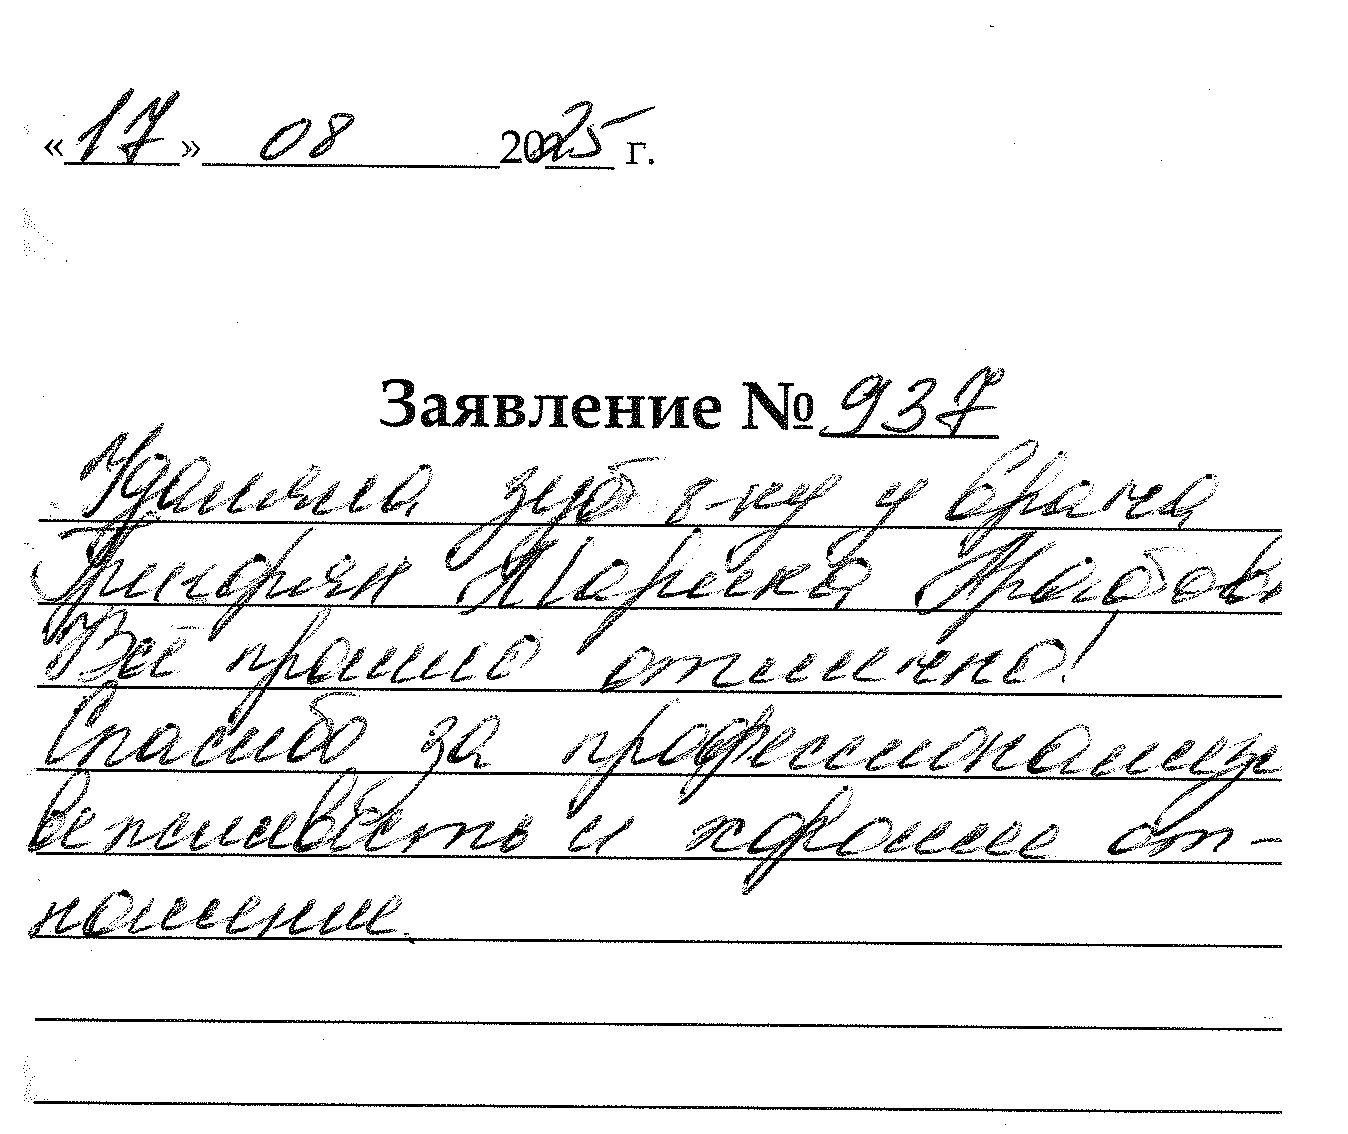 «17» 08 2025 г.
Заявление № 937
Удаляла зуб 8-ку у врача
Григорян Марика Арабовн
Всё прошло отлично!
Спасибо за профессионализм
вежливость и хорошее от-
ношение.